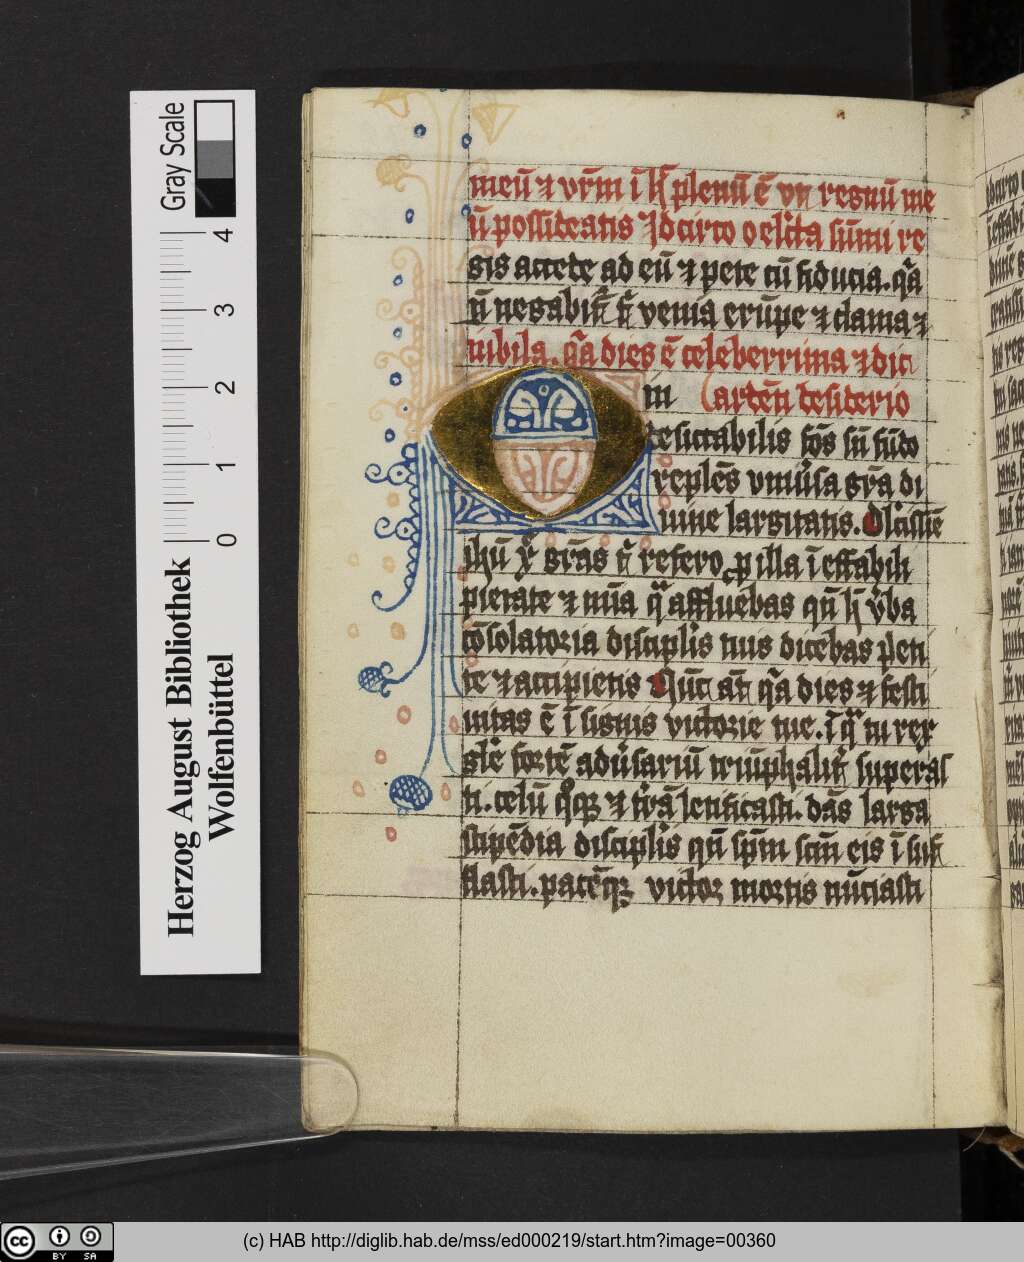 meū ⁊ vr̄m ī h̄ plenū ē vn̄ regnū me
ū possideatis Jdcirco o elc̄ta sūmi re
gis accede ad eū ⁊ pete cū fiducia. qr̄
ñ negabit t̄ venia erūpe ⁊ clama ⁊
iubila. qr̄ dies ē celeberrima ⁊ dic
m ardēti desiderio
desiccabilis fōs sū fūdo
replēs vniūsa gr̄a di
uine largitatis. Dulcissīe
ihū xp̄e gr̄as t̄ refero p illa ī effabili
pietate ⁊ mīa q̄ affluebas qū h̄ v̄ba
cōsolatoria discipl̄is tuis dicebas peti
te ⁊ accipietis Nūc aūt qr̄ dies ⁊ festi
uitas ē ī signis victorie tue. ī q̄ tu rex
gl̄e fortē adūsariū triūphalit̄ superas
ti. celū qoq; ⁊ tr̄a letificasti. dās larga
stipēdia discipl̄is qū spm̄ scm̄ eis ī suf
flasti. pacēq; victor mortis nūciasti
Gray Scale
0 1 2 3 4
Herzog August Bibliothek
Wolfenbüttel
(c) HAB http://diglib.hab.de/mss/ed000219/start.htm?image=00360
cc BY SA